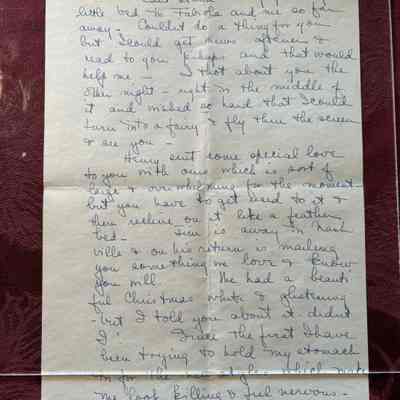 little bed to Fabiola and me so far
away - Couldn't do a thing for you
but I could get news oftener &
read to you perhaps and that would
help me - I thot about you the
other night - right in the middle of
it and wished so hard that I could
turn into a fairy & fly thru the screen
& see you -
Henry sent some special love
to you with ours which is sort of
huge & overwhelming for the moment -
but you have to get used to it &
then recline on it like a feather
bed - is away in Nash
ville & on his return is mailing
you something we love & know
you will. We had a beauti
ful Christmas white & glistening
- but I told you about it didn't
I Since the first I have
been trying to hold my stomach
in for the new styles which make
me look killing & feel nervous -